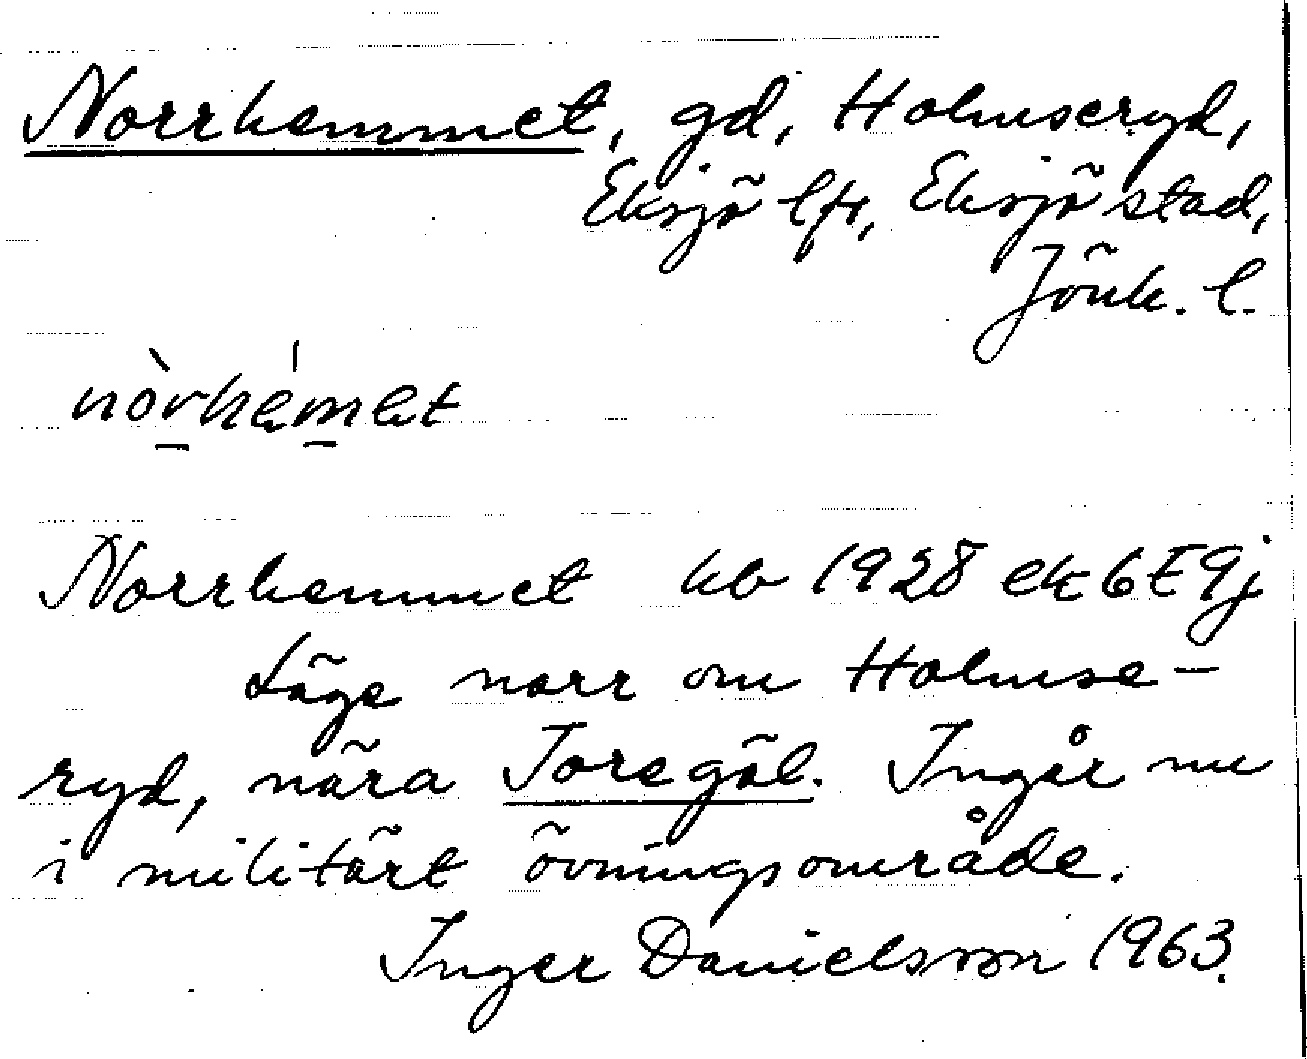 Norrhemmet, gd, Holmseryd,
Eksjö lfs, Eksjö stad,
Jönk. l.
nòrhémet
Norrhemmet kb 1928 ek 6 E 9j
Läge norr om Holmse-
ryd, nära Toregöl. Ingår nu
i militärt övningsområde.
Inger Danielsson 1963.